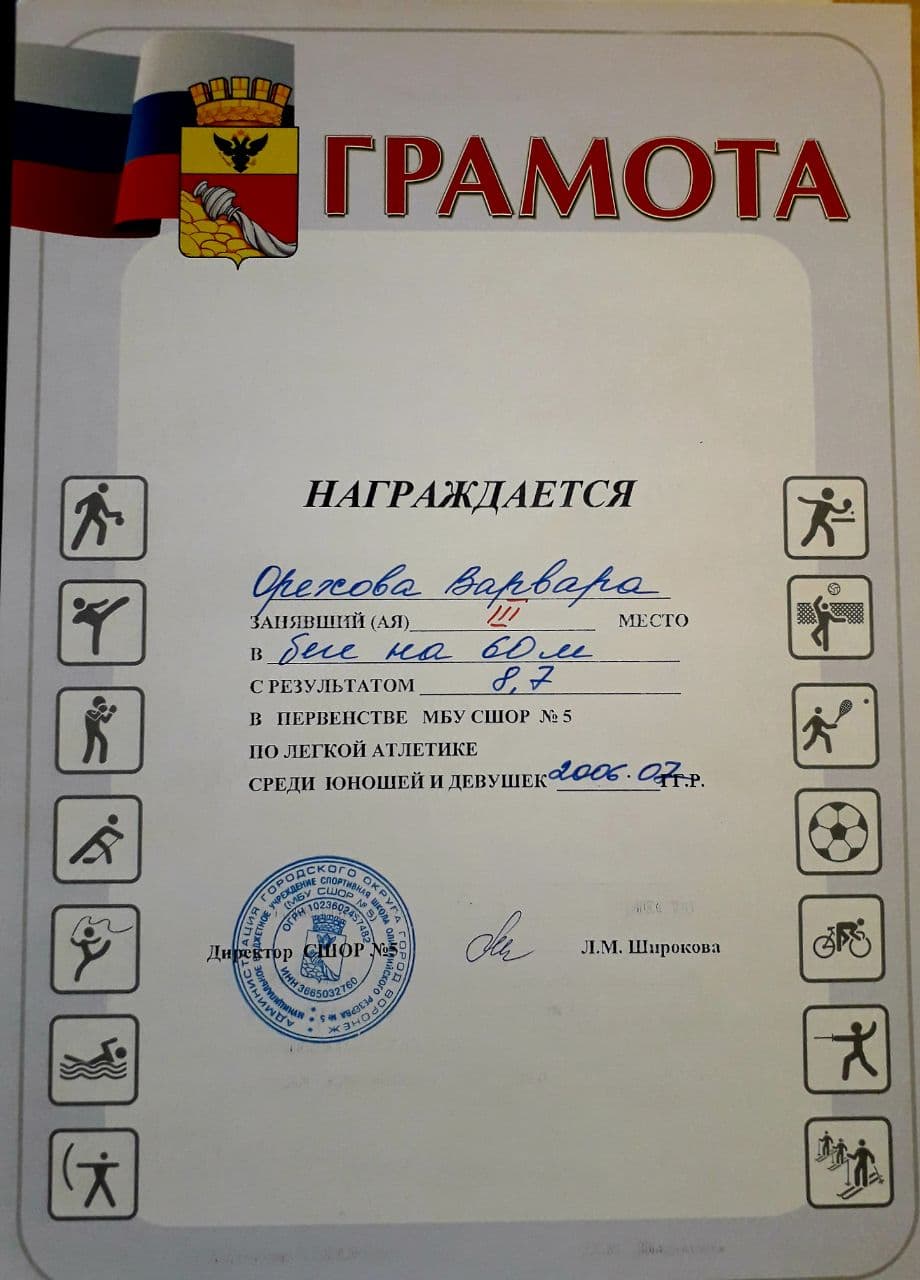 ГРАМОТА
НАГРАЖДАЕТСЯ
Орехова Варвара
ЗАНЯВШИЙ (АЯ) III МЕСТО
В бег на 60 м
С РЕЗУЛЬТАТОМ 8,7
В ПЕРВЕНСТВЕ МБУ СШОР № 5
ПО ЛЕГКОЙ АТЛЕТИКЕ
СРЕДИ ЮНОШЕЙ И ДЕВУШЕК 2006-07 ГГ.Р.
Директор СШОР №5 Л.М. Широкова
АДМИНИСТРАЦИЯ ГОРОДСКОГО ОКРУГА ГОРОД ВОРОНЕЖ
МУНИЦИПАЛЬНОЕ БЮДЖЕТНОЕ УЧРЕЖДЕНИЕ СПОРТИВНАЯ ШКОЛА ОЛИМПИЙСКОГО РЕЗЕРВА № 5
(МБУ СШОР № 5)
ОГРН 1023602457482
ИНН 3665032760